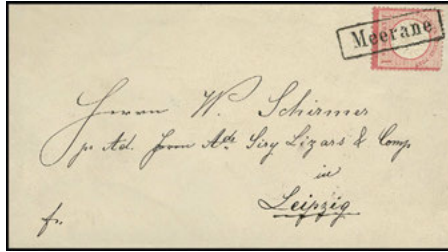 Meerane
1
Herrn W. Schirmer
pr Ad. Herrn Ad. Siry Lizars & Comp
in
Leipzig
fr.